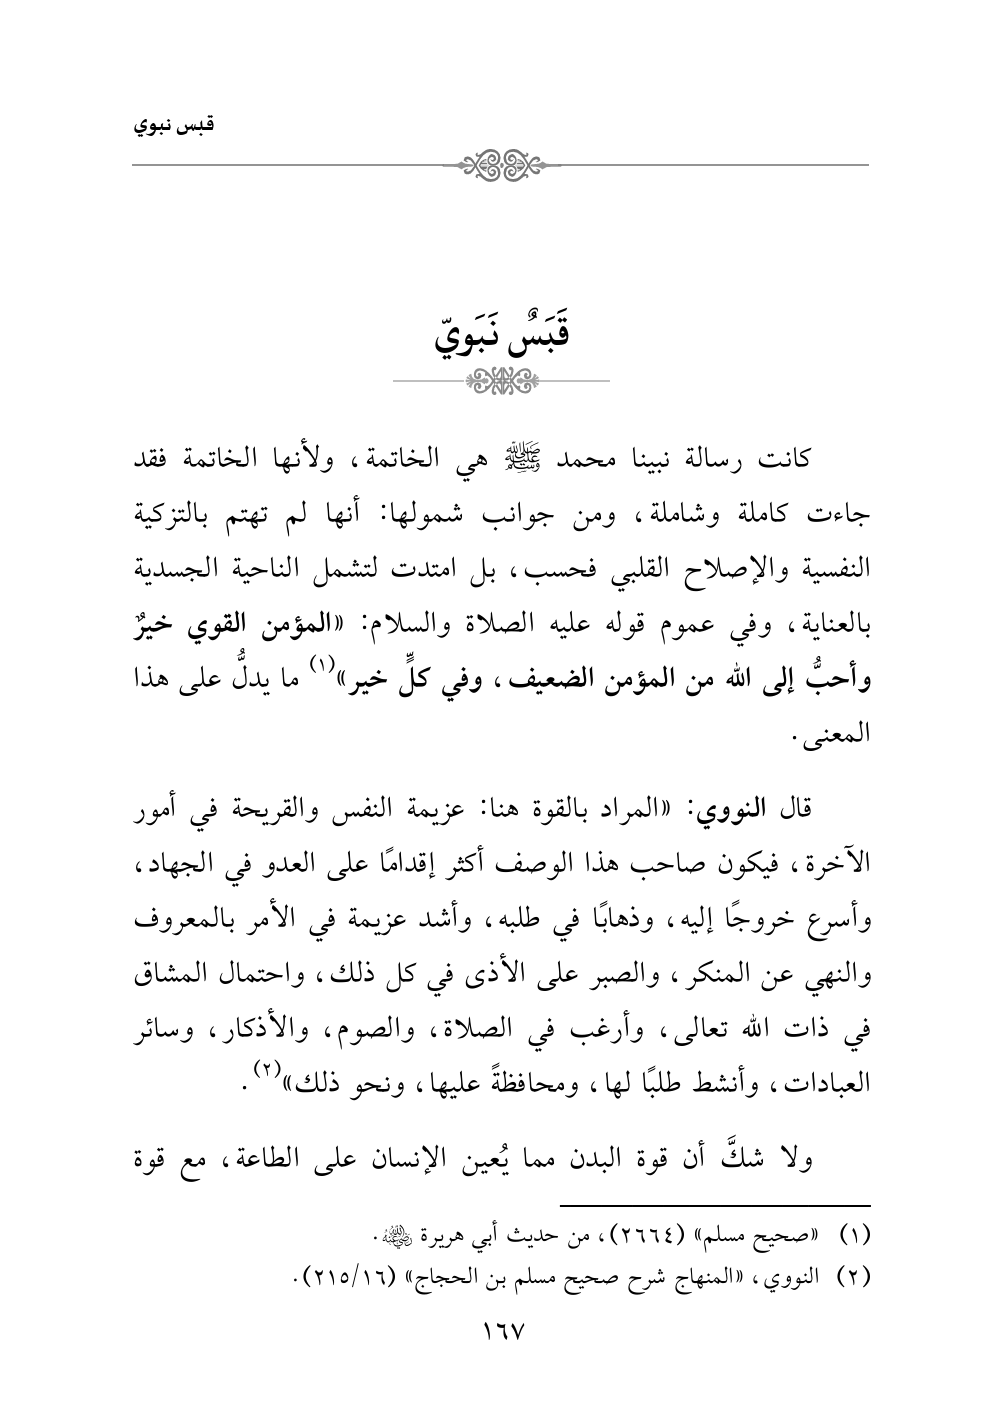 قبس نبوي
قَبَسٌ نَبَويّ
كانت رسالة نبينا محمد ﷺ هي الخاتمة، ولأنها الخاتمة فقد
جاءت كاملة وشاملة، ومن جوانب شمولها: أنها لم تهتم بالتزكية
النفسية والإصلاح القلبي فحسب، بل امتدت لتشمل الناحية الجسدية
بالعناية، وفي عموم قوله عليه الصلاة والسلام: «المؤمن القوي خيرٌ
وأحبُّ إلى الله من المؤمن الضعيف، وفي كلٍّ خير»(١) ما يدلُّ على هذا
المعنى.
قال النووي: «المراد بالقوة هنا: عزيمة النفس والقريحة في أمور
الآخرة، فيكون صاحب هذا الوصف أكثر إقدامًا على العدو في الجهاد،
وأسرع خروجًا إليه، وذهابًا في طلبه، وأشد عزيمة في الأمر بالمعروف
والنهي عن المنكر، والصبر على الأذى في كل ذلك، واحتمال المشاق
في ذات الله تعالى، وأرغب في الصلاة، والصوم، والأذكار، وسائر
العبادات، وأنشط طلبًا لها، ومحافظةً عليها، ونحو ذلك»(٢).
ولا شكَّ أن قوة البدن مما يُعين الإنسان على الطاعة، مع قوة
(١) «صحيح مسلم» (٢٦٦٤)، من حديث أبي هريرة رضي الله عنه.
(٢) النووي، «المنهاج شرح صحيح مسلم بن الحجاج» (٢١٥/١٦).
١٦٧